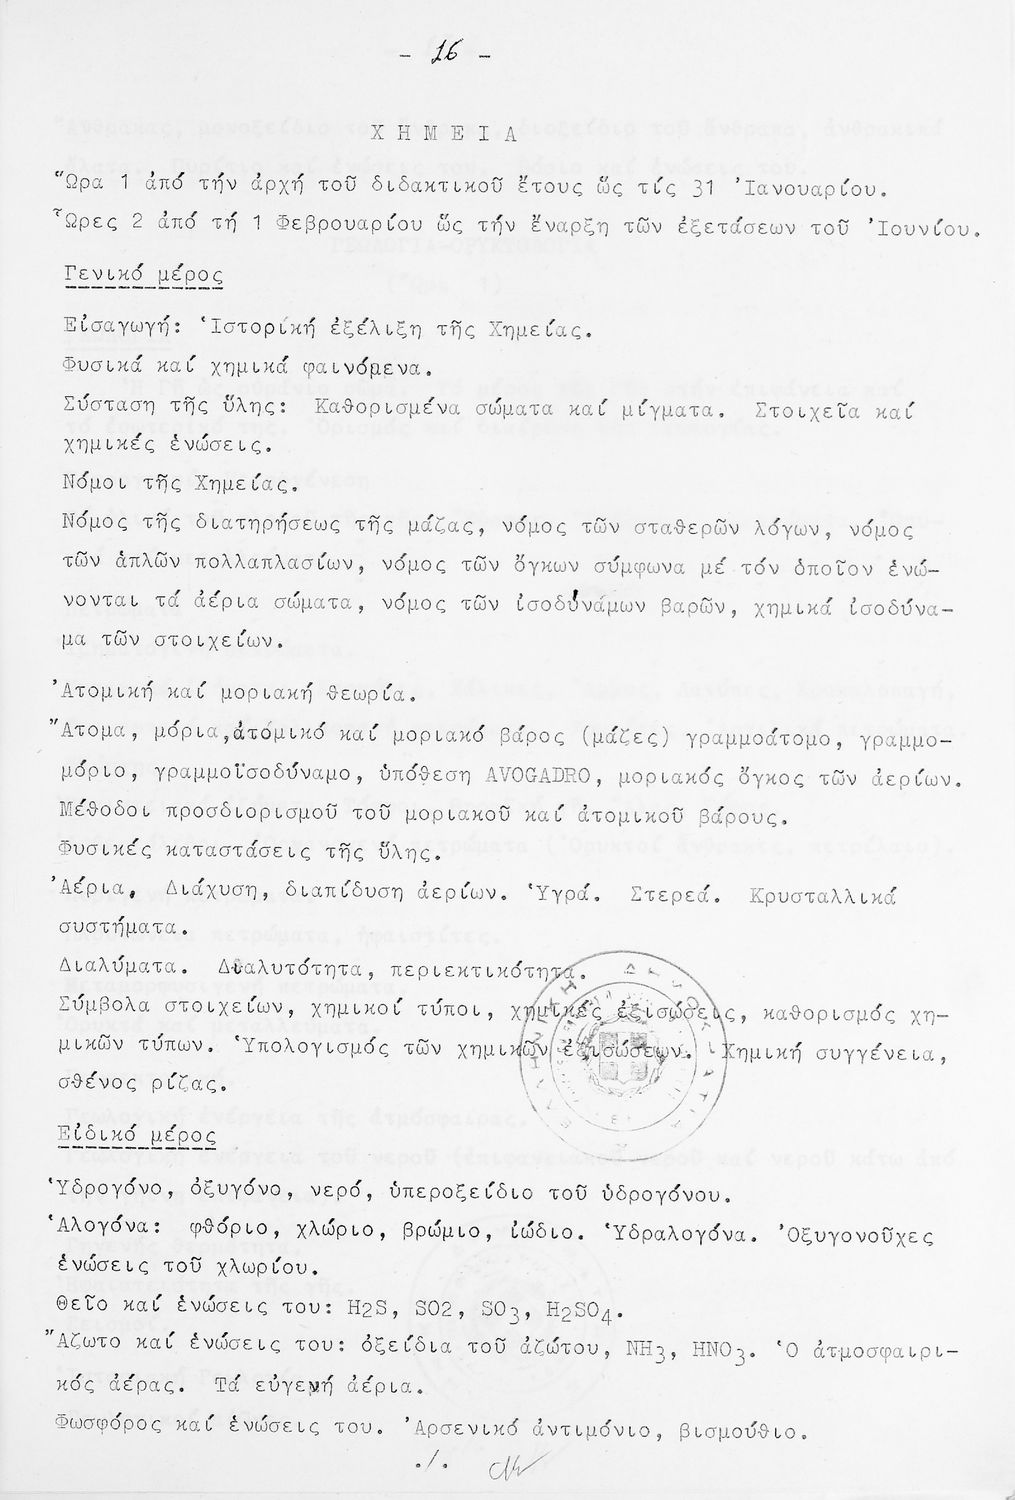 - 16 -
ΧΗΜΕΙΑ
Ὥρα 1 ἀπό τήν ἀρχή τοῦ διδακτικοῦ ἔτους ὥς τίς 31 Ἰανουαρίου.
Ὧρες 2 ἀπό τή 1 Φεβρουαρίου ὥς τήν ἔναρξη τῶν ἐξετάσεων τοῦ Ἰουνίου.
Γενικό μέρος
Εἰσαγωγή: Ἱστορική ἐξέλιξη τῆς Χημείας.
Φυσικά καί χημικά φαινόμενα.
Σύσταση τῆς ὕλης: Καθορισμένα σώματα καί μίγματα. Στοιχεῖα καί
χημικές ἑνώσεις.
Νόμοι τῆς Χημείας.
Νόμος τῆς διατηρήσεως τῆς μάζας, νόμος τῶν σταθερῶν λόγων, νόμος
τῶν ἁπλῶν πολλαπλασίων, νόμος τῶν ὄγκων σύμφωνα μέ τόν ὁποῖον ἑνώ-
νονται τά ἀέρια σώματα, νόμος τῶν ἰσοδύνάμων βαρῶν, χημικά ἰσοδύνα-
μα τῶν στοιχείων.
Ἀτομική καί μοριακή θεωρία.
Ἄτομα, μόρια, ἀτομικό καί μοριακό βάρος (μάζες) γραμμοάτομο, γραμμο-
μόριο, γραμμοϊσοδύναμο, ὑπόθεση AVOGADRO, μοριακός ὄγκος τῶν ἀερίων.
Μέθοδοι προσδιορισμοῦ τοῦ μοριακοῦ καί ἀτομικοῦ βάρους.
Φυσικές καταστάσεις τῆς ὕλης.
Ἀέρια, Διάχυση, διαπίδυση ἀερίων. Ὑγρά. Στερεά. Κρυσταλλικά
συστήματα.
Διαλύματα. Διαλυτότητα, περιεκτικότητα.
Σύμβολα στοιχείων, χημικοί τύποι, χημικές ἐξισώσεις, καθορισμός χη-
μικῶν τύπων. Ὑπολογισμός τῶν χημικῶν ἐξισώσεων. Χημική συγγένεια,
σθένος ρίζας.
Εἰδικό μέρος
Ὑδρογόνο, ὀξυγόνο, νερό, ὑπεροξείδιο τοῦ ὑδρογόνου.
Ἁλογόνα: φθόριο, χλώριο, βρώμιο, ἰώδιο. Ὑδραλογόνα. Ὀξυγονοῦχες
ἑνώσεις τοῦ χλωρίου.
Θεῖο καί ἑνώσεις του: H2S, SO2, SO3, H2SO4.
Ἄζωτο καί ἑνώσεις του: ὀξείδια τοῦ ἀζώτου, NH3, HNO3. Ὁ ἀτμοσφαιρι-
κός ἀέρας. Τά εὐγενή ἀέρια.
Φωσφόρος καί ἑνώσεις του. Ἀρσενικό ἀντιμόνιο, βισμούθιο.
./.